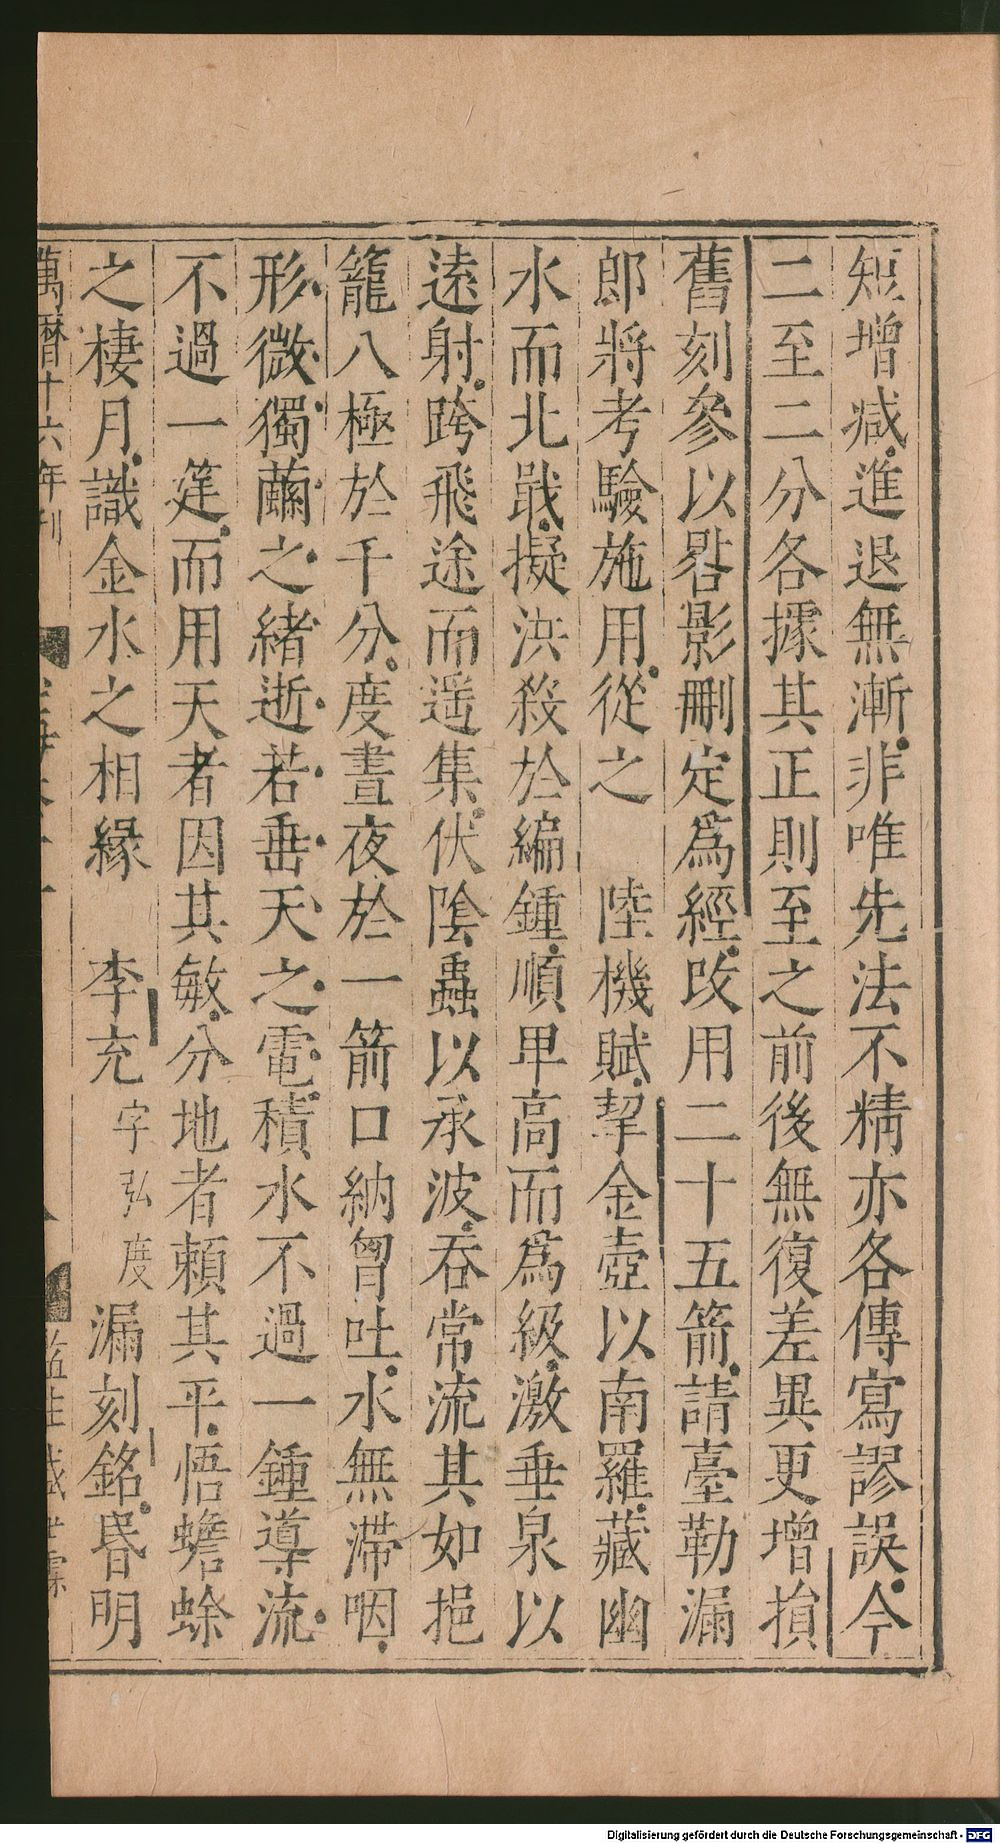 短增减進退無漸非唯先法不精亦各傳寫謬誤今
二至二分各據其正則至之前後無復差異更增損
舊刻參以晷影刪定爲經改用二十五箭請臺勒漏
郎將考驗施用從之　陸機賦挈金壺以南羅藏幽
水而北戢擬洪殺於編鍾順卑高而爲級激垂泉以
遠射跨飛途而遥集伏陰蟲以承波吞常流其如挹
籠八極於千分度晝夜於一箭口納胷吐水無滯咽
形微獨繭之緒逝若垂天之電積水不過一鍾導流
不過一筳而用天者因其敏分地者賴其平悟蟾蜍
之棲月識金水之相緣　李充字弘度漏刻銘昏明
萬曆十六年刊
Digitalisierung gefördert durch die Deutsche Forschungsgemeinschaft - DFG